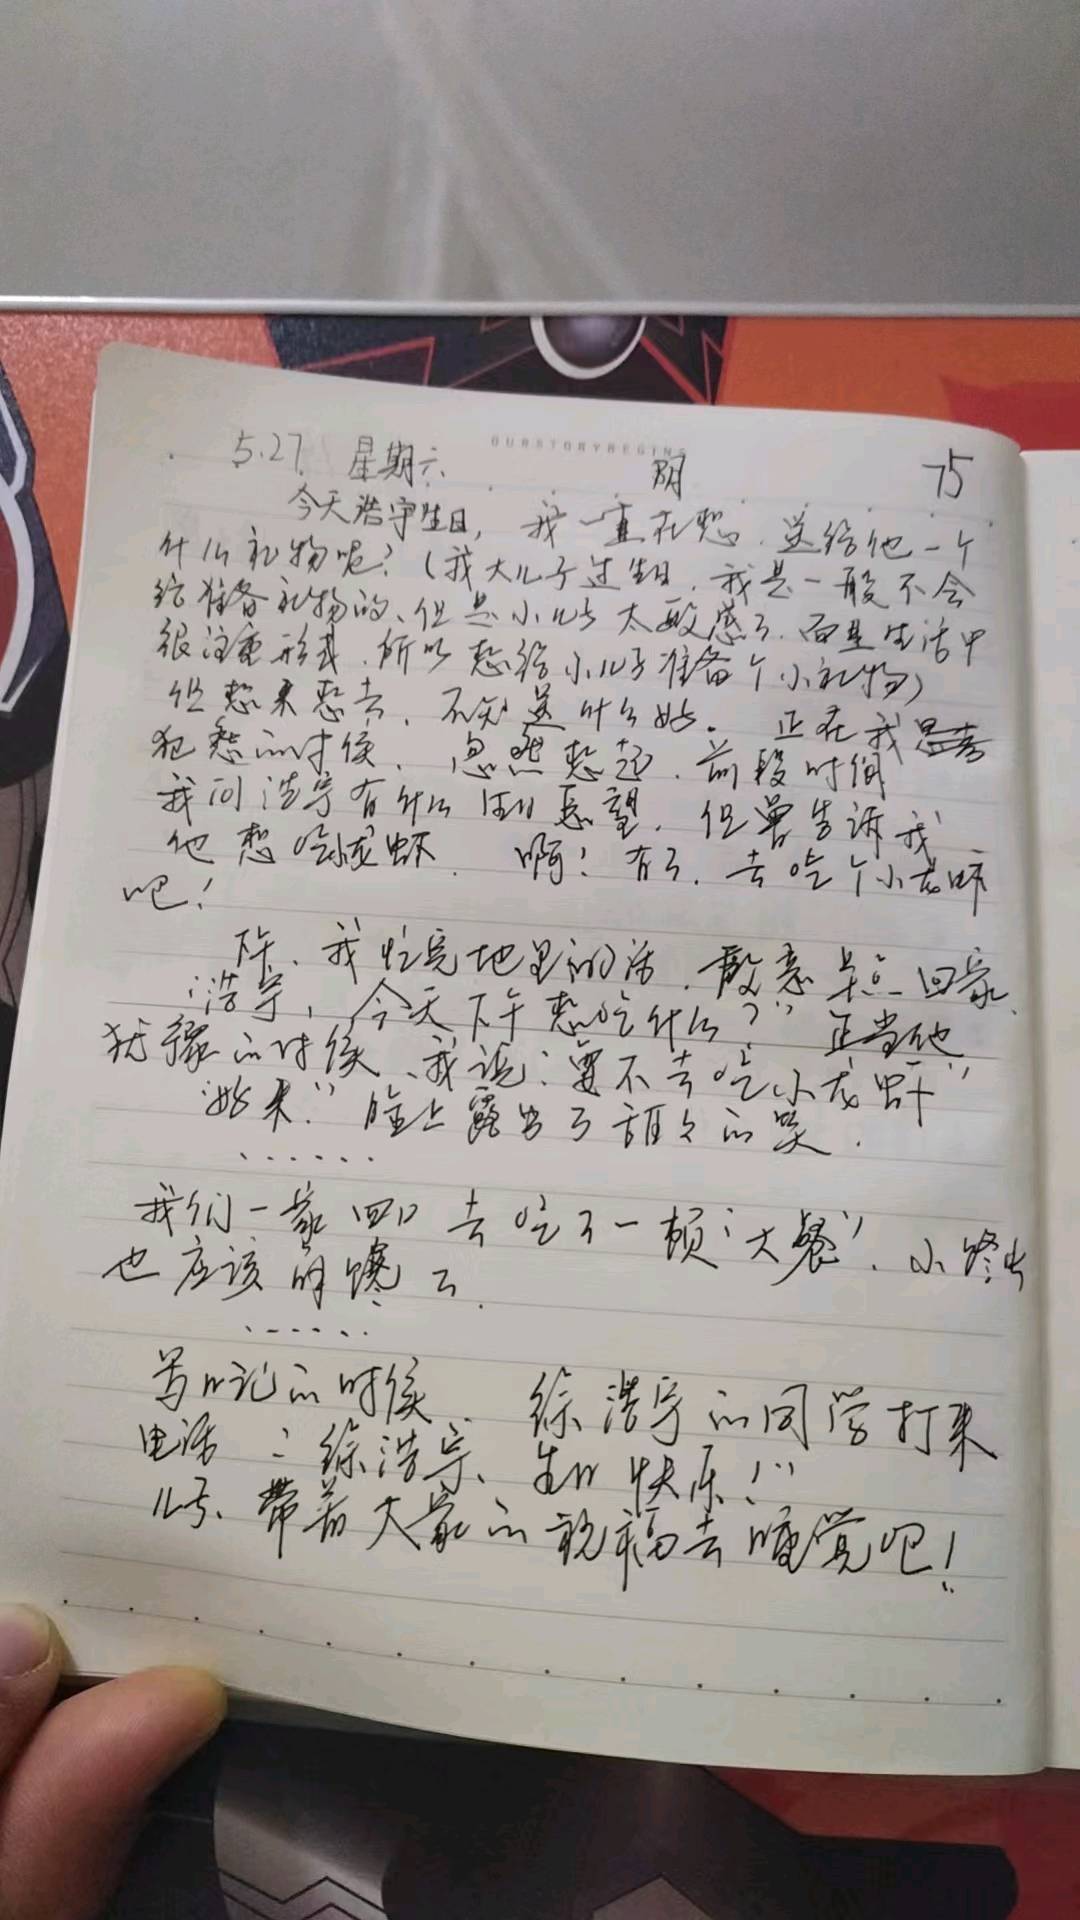 OURSTORYBEGINS
5.27 星期六 阴 75
今天浩宇生日，我一直在想，送给他一个
什么礼物呢？（我大儿子过生日，我是一般不会
给准备礼物的、但是小儿子太敏感了，而且生活中
很注重形式，所以想给小儿子准备个小礼物）
但想来想去，不知送什么好。正在我思考
犯愁的时候，忽然想起，前段时间
我问浩宇有什么生日愿望，但曾告诉我
他想吃龙虾． 啊！有了，去吃个小龙虾
吧！
下午，我忙完地里的活，故意早点回家，
“浩宇，今天下午想吃什么？”正当他
犹豫的时候，我说：要不去吃小龙虾”
“好来”脸上露出了甜々的笑．
……
我们一家四口去吃了一顿“大餐”，小
也应该解馋了．
……
写日记的时候 徐浩宇的同学打来
电话：“徐浩宇、生日快乐！”
儿子、带着大家的祝福去睡觉吧！